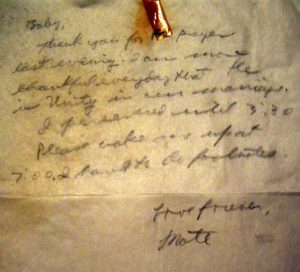 Baby,
Thank you for the prayer
last evening. I am more
thankful everyday that the
is Unity in our marriage.
I persevered until 3:30
Please wake me up at
7:00. I have to do footnotes.
Love forever,
Mate